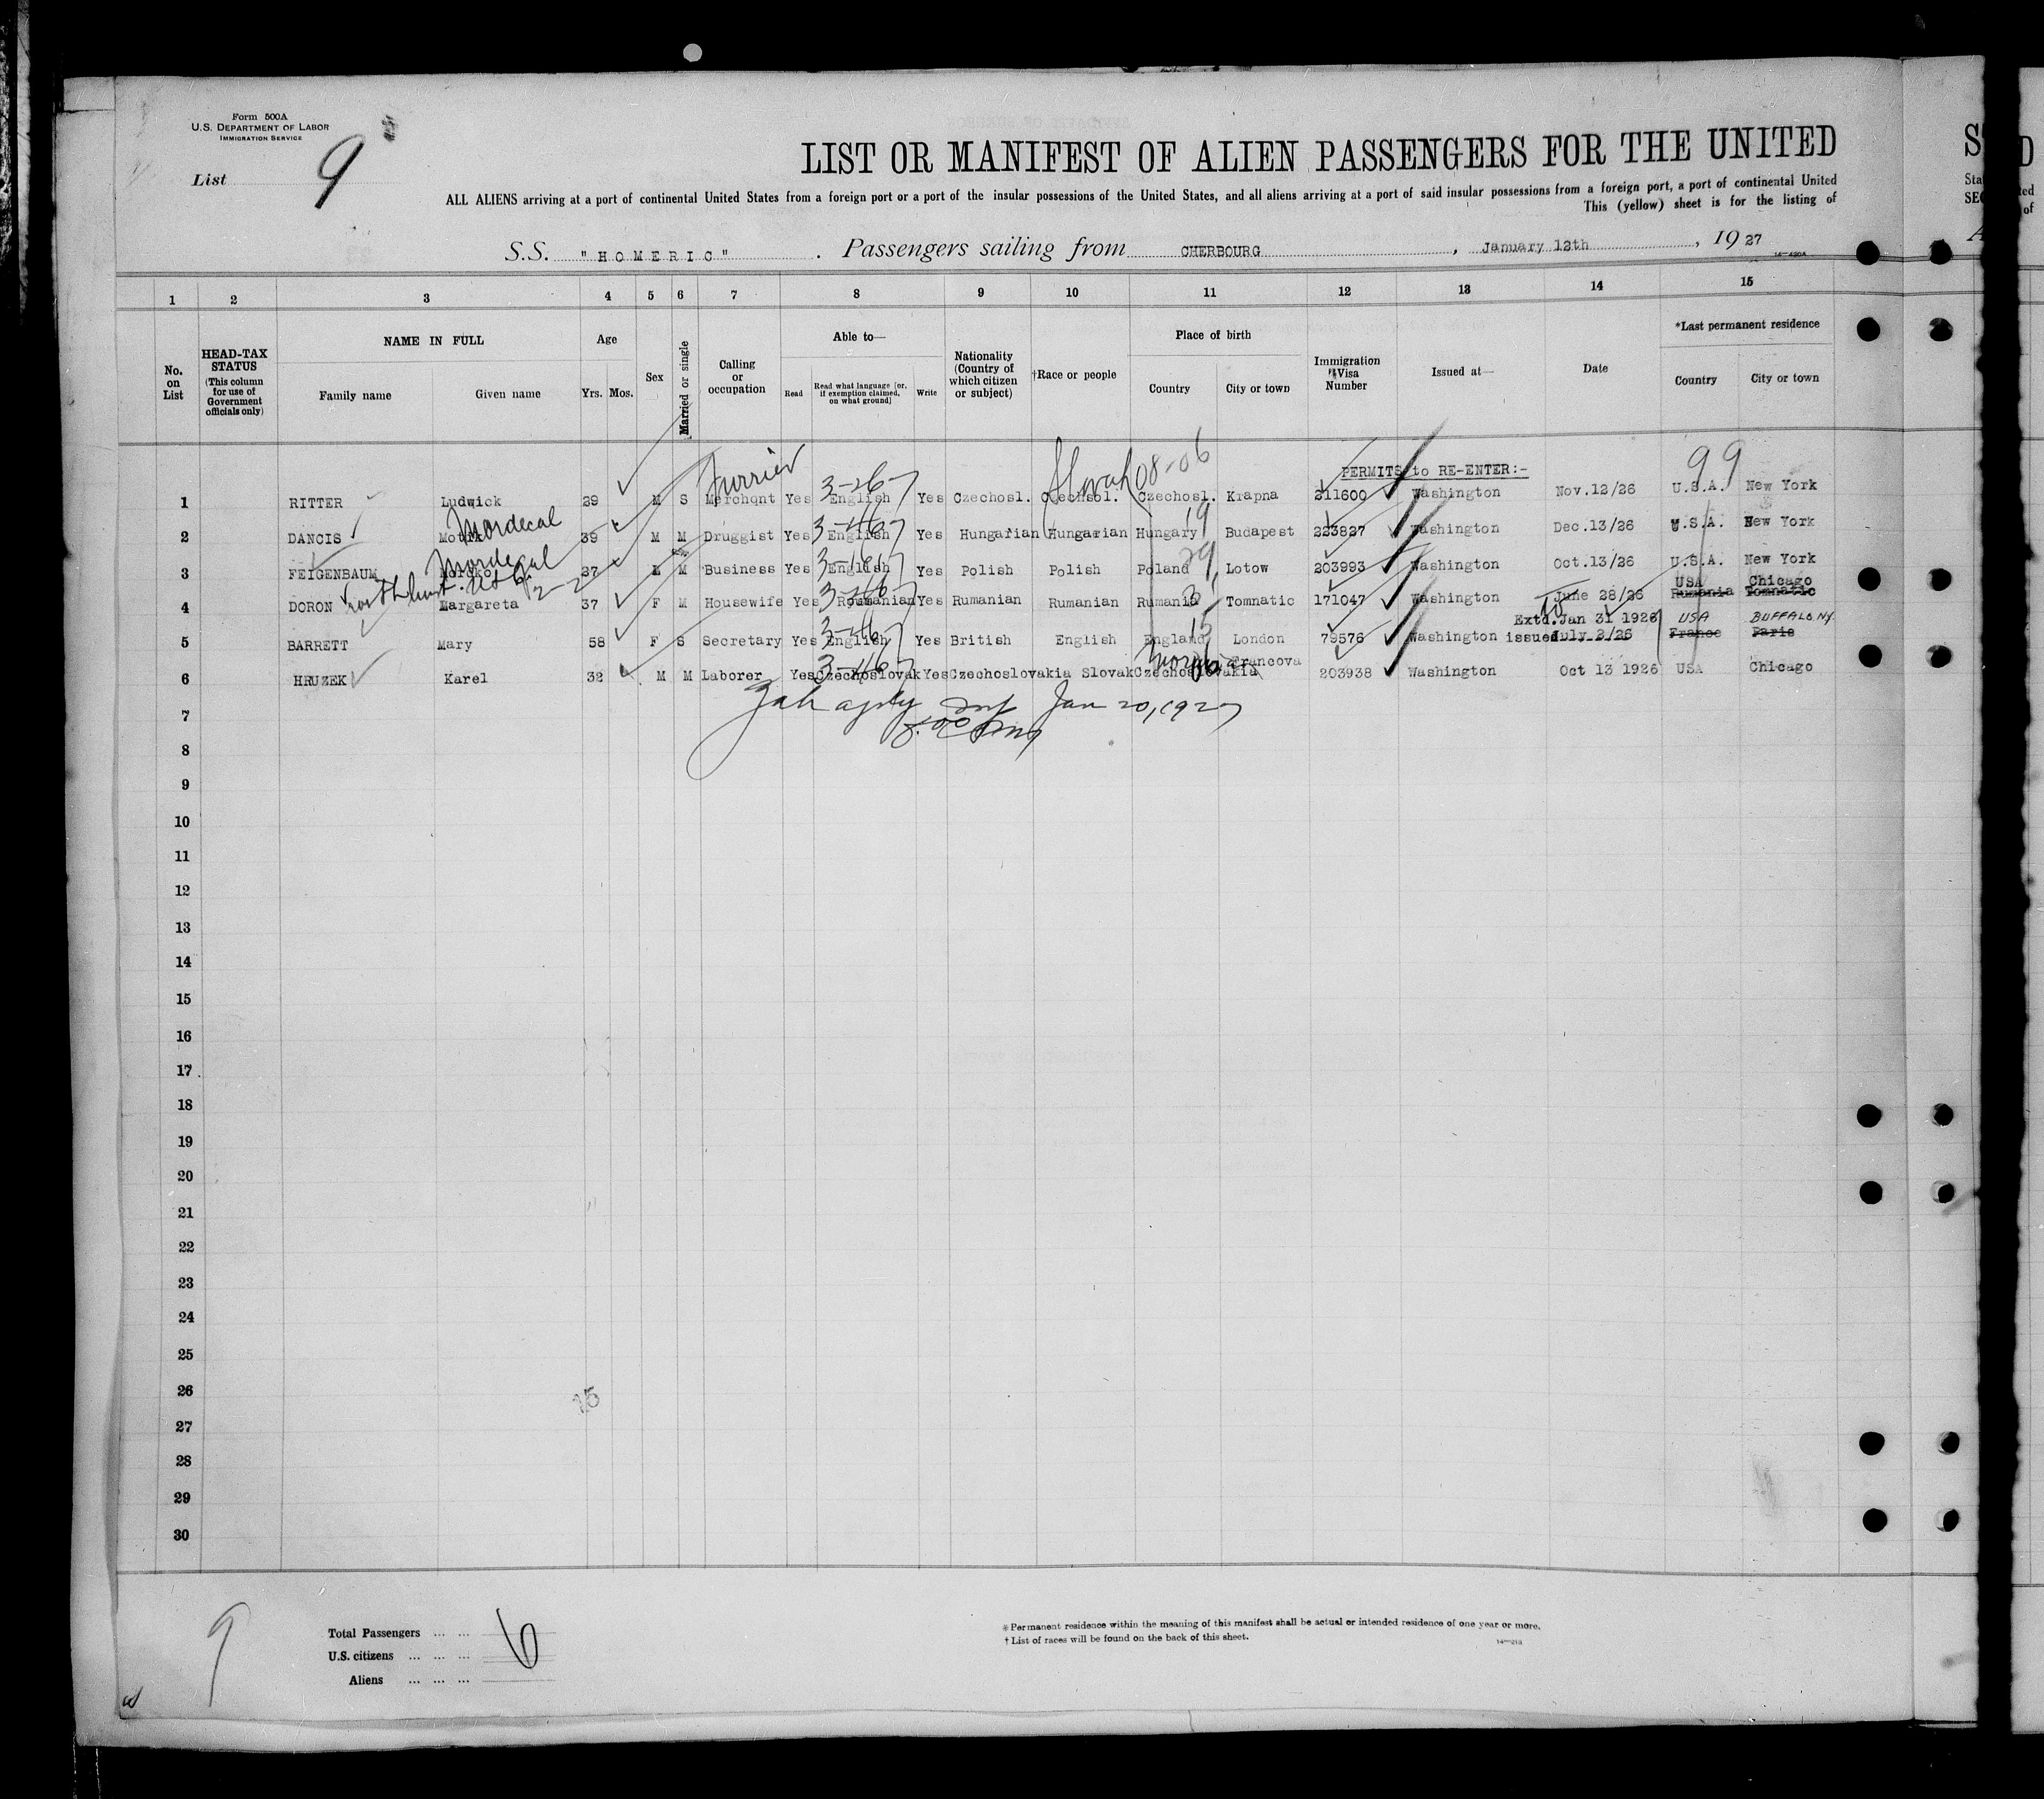 Form 500A
U.S. DEPARTMENT OF LABOR
IMMIGRATION SERVICE
List 9
LIST OR MANIFEST OF ALIEN PASSENGERS FOR THE UNITED
ALL ALIENS arriving at a port of continental United States from a foreign port or a port of the insular possessions of the United States, and all aliens arriving at a port of said insular possessions from a foreign port, a port of continental United
This (yellow) sheet is for the listing of
S.S. "HOMERIC". Passengers sailing from CHERBOURG, January 12th, 1927
1 2 3 4 5 6 7 8 9 10 11 12 13 14 15
No. on List
HEAD-TAX STATUS (This column for use of Government officials only)
NAME IN FULL
Family name Given name
Age
Yrs. Mos.
Sex
Married or single
Calling or occupation
Able to—
Read Read what language [or, if exemption claimed, on what ground] Write
Nationality (Country of which citizen or subject)
†Race or people
Place of birth
Country City or town
Immigration Visa Number
Issued at—
Date
*Last permanent residence
Country City or town
Furrier 3-26-7 Slovak 08-06 99
PERMITS to RE-ENTER:-
1 RITTER Ludwick 29 M S Merchant Yes English Yes Czechosl. Czechosl. Czechosl. Krapna 211600 Washington Nov.12/26 U.S.A. New York
Mordecal 19
2 DANCIS 39 M M Druggist Yes English Yes Hungarian Hungarian Hungary Budapest 223827 Washington Dec.13/26 U.S.A. New York
29
3 FEIGENBAUM 37 M M Business Yes English Yes Polish Polish Poland Lotow 203993 Washington Oct.13/26 U.S.A. New York
USA Chicago
4 DORON Margareta 37 F M Housewife Yes Roumanian Yes Rumanian Rumanian Rumania Tomnatic 171047 Washington June 28/26 Rumania Tomnatic
Extd. to Jan 31 1926 USA BUFFALO NY.
5 BARRETT Mary 58 F S Secretary Yes English Yes British English England London 79576 Washington issued July 2/26 France Paris
Francova
6 HRUZEK Karel 32 M M Laborer Yes Czechoslovak Yes Czechoslovakia Slovak Czechoslovakia 203938 Washington Oct 13 1926 USA Chicago
Jan 20, 1927
7
8
9
10
11
12
13
14
15
16
17
18
19
20
21
22
23
24
25
26
27
28
29
30
9
Total Passengers ... ... 6
U.S. citizens ... ... ...
Aliens ... ... ...
*Permanent residence within the meaning of this manifest shall be actual or intended residence of one year or more.
† List of races will be found on the back of this sheet.